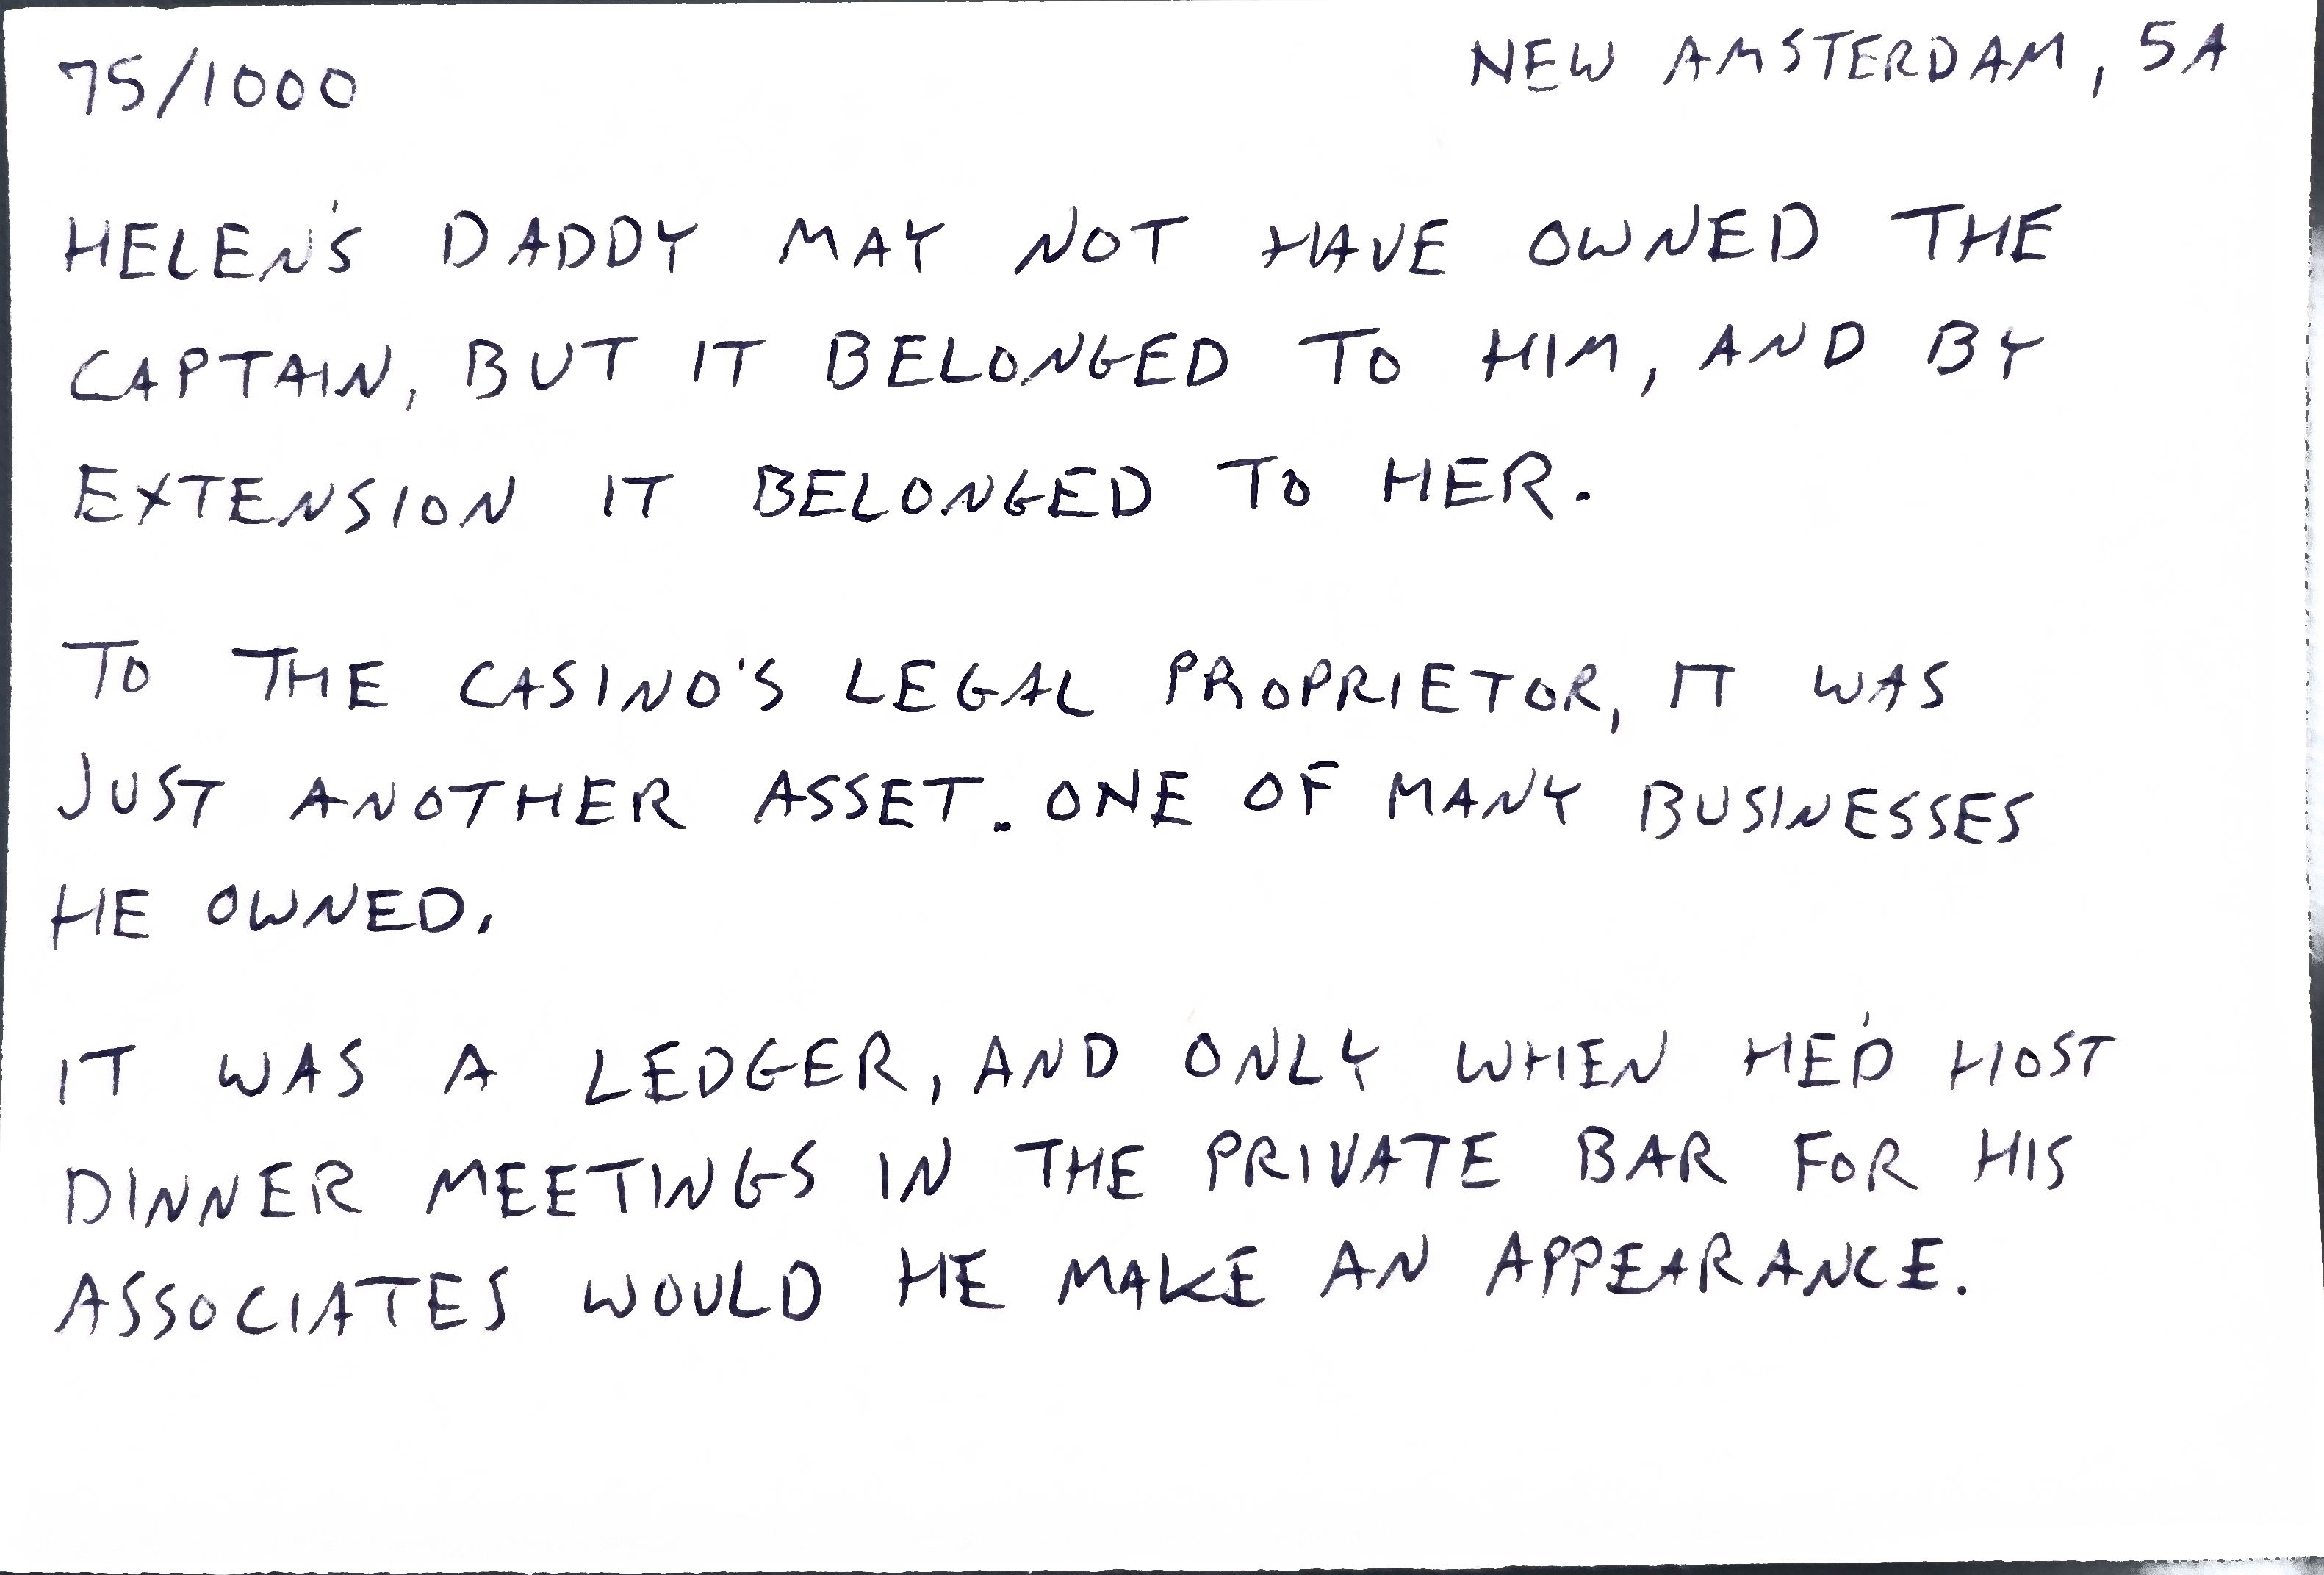 75/1000
NEW AMSTERDAM, 5A
HELEN'S DADDY MAY NOT HAVE OWNED THE
CAPTAIN, BUT IT BELONGED TO HIM, AND BY
EXTENSION IT BELONGED TO HER.
TO THE CASINO'S LEGAL PROPRIETOR, IT WAS
JUST ANOTHER ASSET. ONE OF MANY BUSINESSES
HE OWNED.
IT WAS A LEDGER, AND ONLY WHEN HE'D HOST
DINNER MEETINGS IN THE PRIVATE BAR FOR HIS
ASSOCIATES WOULD HE MAKE AN APPEARANCE.